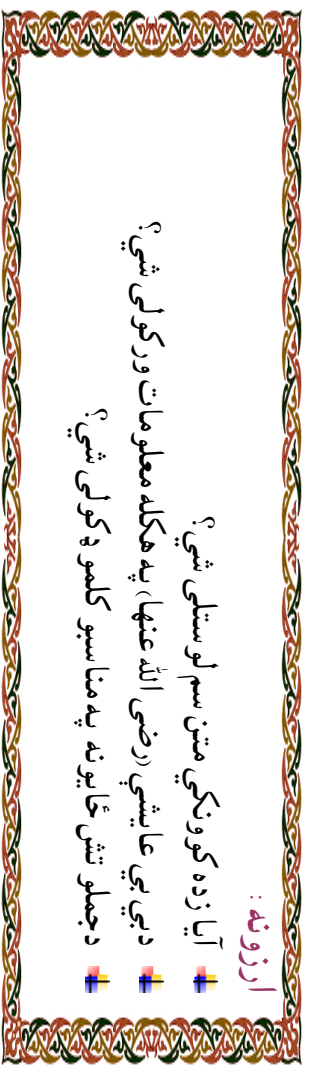 ارزونه :
آيا زده کوونکي متن سم لوستلی شي؟
دبي بي عايشي (رضی الله عنها) په هکله معلومات ورکولی شي؟
دجملو تش ځايونه په مناسبو کلمو ډکولی شي؟